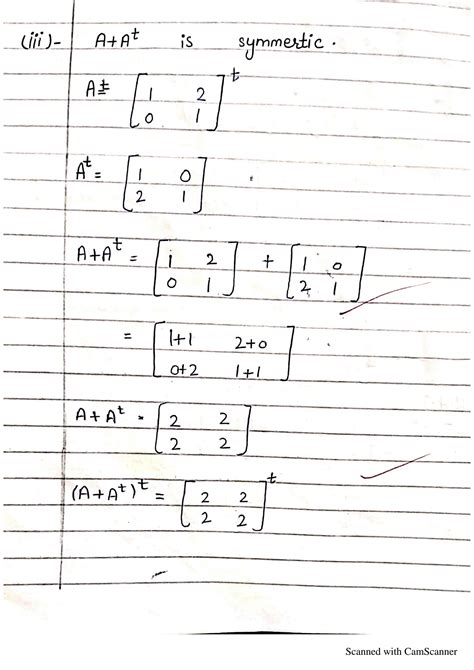 (iii)- A+Aᵗ is symmertic.
Aᵗ= [1 2
0 1]ᵗ
Aᵗ= [1 0
2 1]
A+Aᵗ = [1 2
0 1] + [1 0
2 1]
= [1+1 2+0
0+2 1+1]
A+Aᵗ = [2 2
2 2]
(A+Aᵗ)ᵗ = [2 2
2 2]ᵗ
Scanned with CamScanner